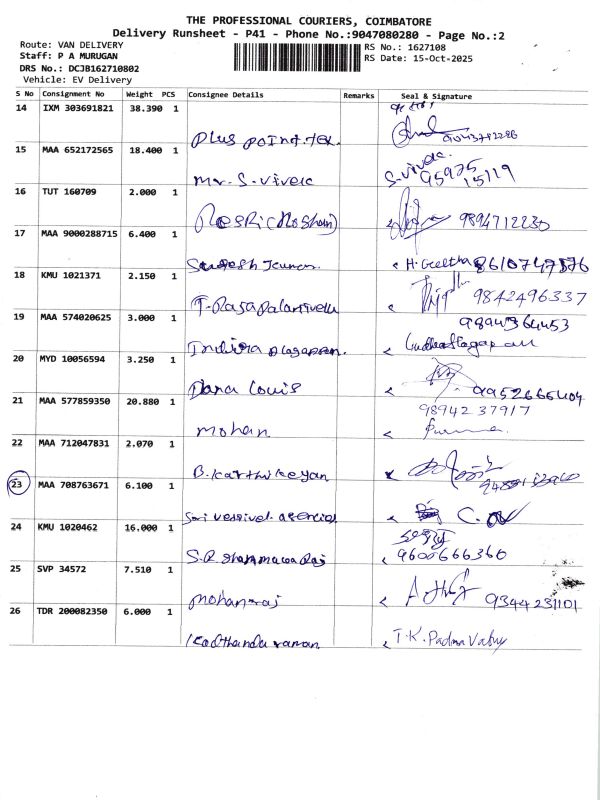 THE PROFESSIONAL COURIERS, COIMBATORE
Delivery Runsheet - P41 - Phone No.:9047080280 - Page No.:2
Route: VAN DELIVERY
RS No.: 1627108
Staff: P A MURUGAN
RS Date: 15-Oct-2025
DRS No.: DCJB162710802
Vehicle: EV Delivery
S No Consignment No Weight PCS Consignee Details Remarks Seal & Signature
14 IXM 303691821 38.390 1
Plus point
15 MAA 652172565 18.400 1
S-vivek.
Mr. S. Vivek 95975
15119
16 TUT 160709 2.000 1
9894712230
17 MAA 9000288715 6.400 1
H. Geetha 8610747376
18 KMU 1021371 2.150 1
9842496337
19 MAA 574020625 3.000 1
9894364453
Indira
20 MYD 10056594 3.250 1
Dana Louis 9952666404
21 MAA 577859350 20.880 1
9894237917
mohan
22 MAA 712047831 2.070 1
B. Karthikeyan
23 MAA 708763671 6.100 1
24 KMU 1020462 16.000 1
9600666360
25 SVP 34572 7.510 1
mohanraj 9344231101
26 TDR 200082350 6.000 1
Kodhandaraman T.K. Padma